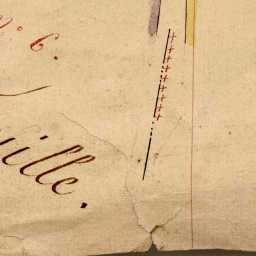 N.º 6.
ille.